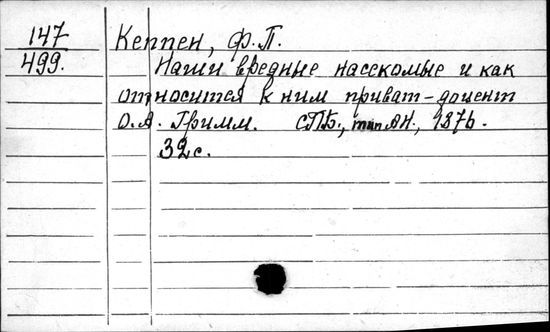 147
499.
Кеппен, Ф.П.
Наши вредные насекомые и как
относится к ним приват-доцент
О.А. Гримм. СПБ., тип АН, 1876.
32 с.